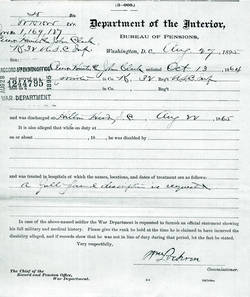 (3-005.)
Department of the Interior,
BUREAU OF PENSIONS,
Washington, D.C. Aug 27, 1895
No. 1,169,187
John Clark
K, 32 U.S.C. Inf.
RECORD & PENSION OFFICE
1244795
WAR DEPARTMENT
John Clark enlisted Oct 13, 1864
Co. K, 32 U.S.C. Inf
and was discharged at Hilton Head, S.C. Aug 22, 1865
It is also alleged that while on duty at
on or about , 18 , he was disabled by
and was treated in hospitals of which the names, locations, and dates of treatment are as follows:
A full personal description is requested
In case of the above-named soldier the War Department is requested to furnish an official statement showing
his full military and medical history. Please give the rank he held at the time he is claimed to have incurred
the disability alleged, and if records show that he was not in line of duty during that period, let the fact be
stated.
Very respectfully,
Wm Lochren
Commissioner.
The Chief of the
Record and Pension Office,
War Department.